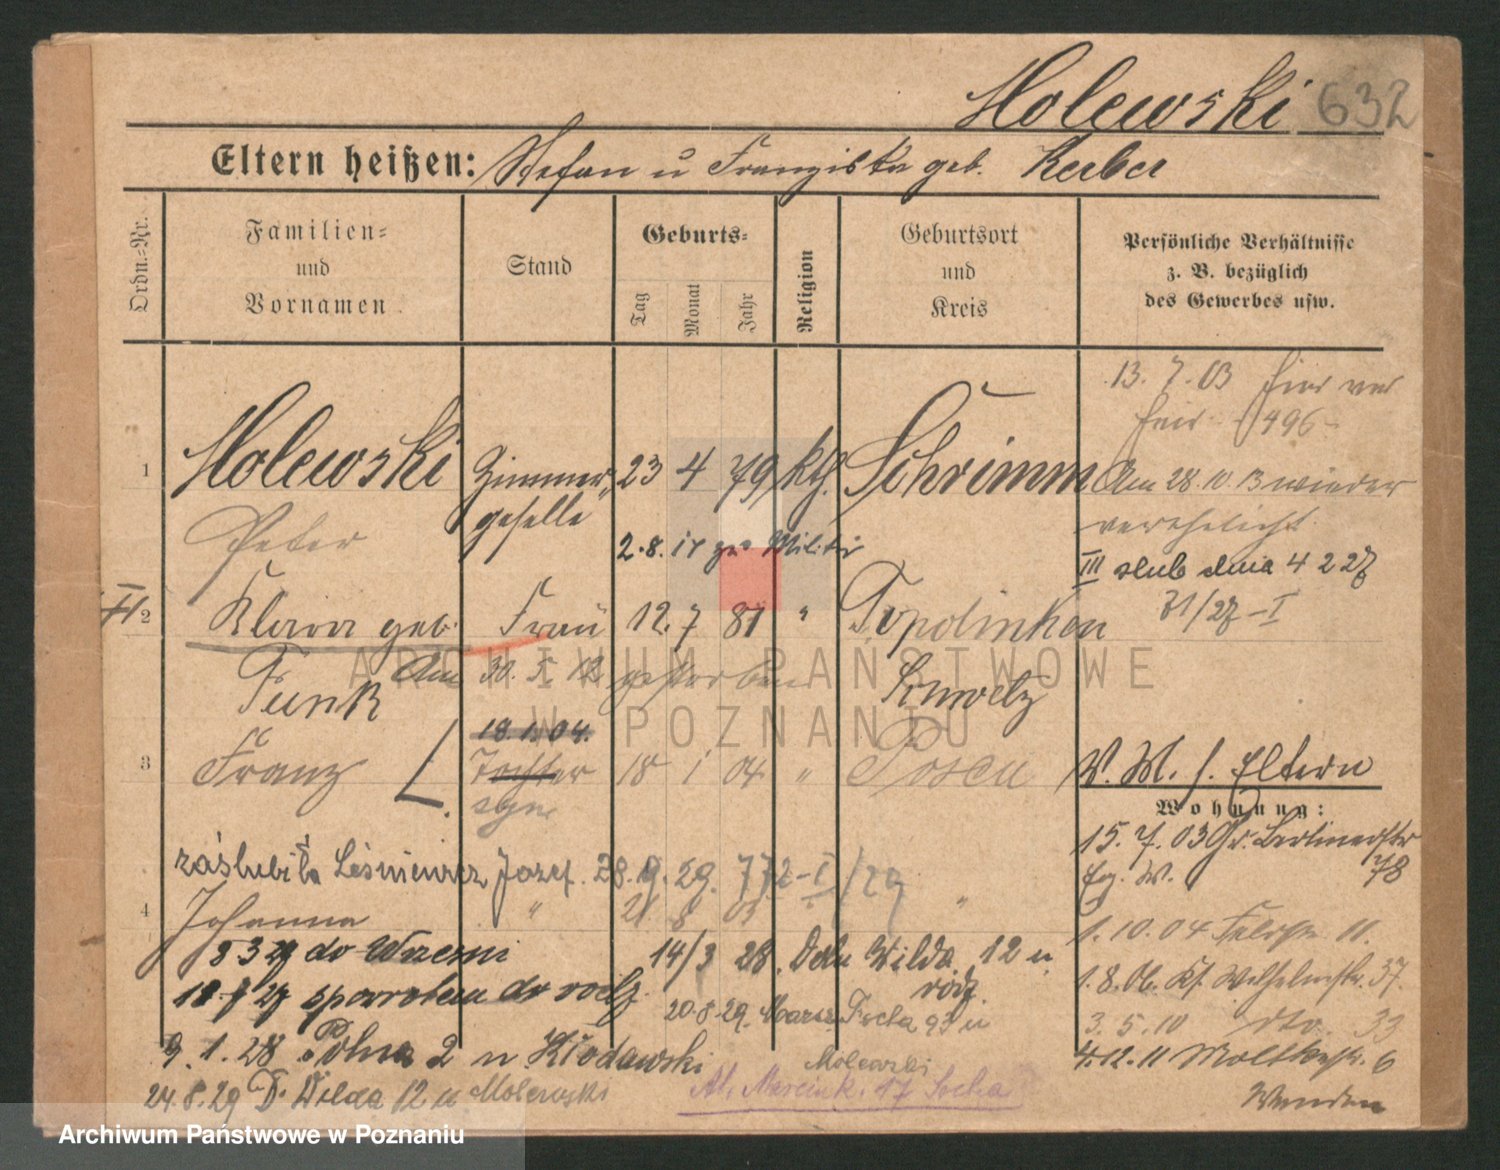 Molewski 632
Eltern heißen: Stefan u Franziska geb. Kerber
Ordn.-Nr.
Familien-
und
Vornamen
Stand
Geburts-
Tag
Monat
Jahr
Religion
Geburtsort
und
Kreis
Persönliche Verhältnisse
z. B. bezüglich
des Gewerbes usw.
13. 7. 03 hier
496
1 Molewski Zimmer- 23 4 79 kth. Schrimm
geselle
Peter
Am 28. 10. 13 wieder
verehelicht
2. 8. 15 zum Militär
III slub dnia 4 2 27
31/27 - I
2 Klara geb. Frau 12. 7 81 " Topolinken
Funk
Am 30. 5. 12 gestorben
Schwetz
18. 1. 04.
3 Franz Tochter 18 1 04 " Posen
syn
V. M. s. Eltern
Wohnung:
15. 7. 03 Gr. Berlinerstr
78
zaślubiła Leśniewicz Józef. 28. 9. 29. 772-I/29
4 Johanna " 21 8 03 "
1. 10. 04 11.
8 3 27 do Wrzesni
14/3 28. Wilda 12 u
rodz.
1. 8. 06. Wilhelmstr. 37.
18 7 27 do rodz.
20. 8. 29. Marsz. Focha 93 u
Molewski
3. 5. 10 dto. 33
9. 1. 28 Polna 2 u Kłodawski
4. 12. 11 Moltkestr. 6
24. 8. 29 D. Wilda 12 u Molewski
Al. Marcink. 17 Socha
ARCHIWUM PAŃSTWOWE
W POZNANIU
Archiwum Państwowe w Poznaniu